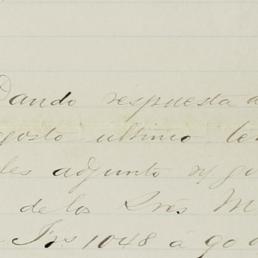 Dando respuesta a
agosto ultimo te
les adjunto
de los Srés M
Frs 1048 á 90 d